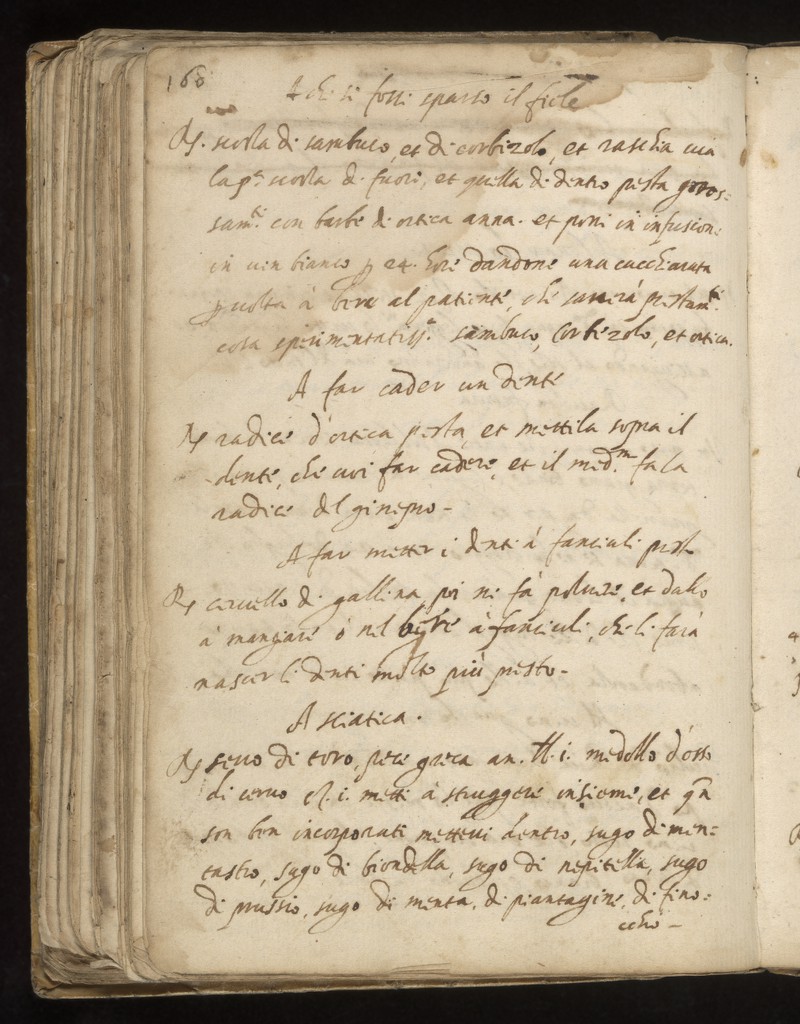 160
A chi si fossi sparso il fiele
Rx. scorza di sambuco, et di corbezolo, et raschia via
la p.ª scorza di fuori, et quella di dentro pesta gross=
sam.te con barbe di ortica anna. et poni in infusione
in vin bianco p 24. hore dandone una cucchiarata
p volta à bere al patiente, che sanerà prestam.te
cosa sperimentatiss.ª sambuco, Corbezolo, et ortica.
A far cader un dente
Rx radice d'ortica pesta, et mettila sopra il
dente, che vuoi far cadere, et il med.m fa la
radice del ginepro-
A far metter i denti à fanciuli presto
Rx cervello di gallina poi ne fà polvere, et dallo
à mangiare ò nel bere à fanciuli, che li farà
nascer li denti molto più presto-
A sciatica.
Rx sevo di toro, pece greca an. ℔. i. medollo d'osso
di cervo i. metti à struggere insieme, et qñ
son ben incorporati mettevi dentro, sugo di men=
tastro, sugo di biondella, sugo di nepitella, sugo
di prussio, sugo di menta, di piantagine, di fino=
cchio-